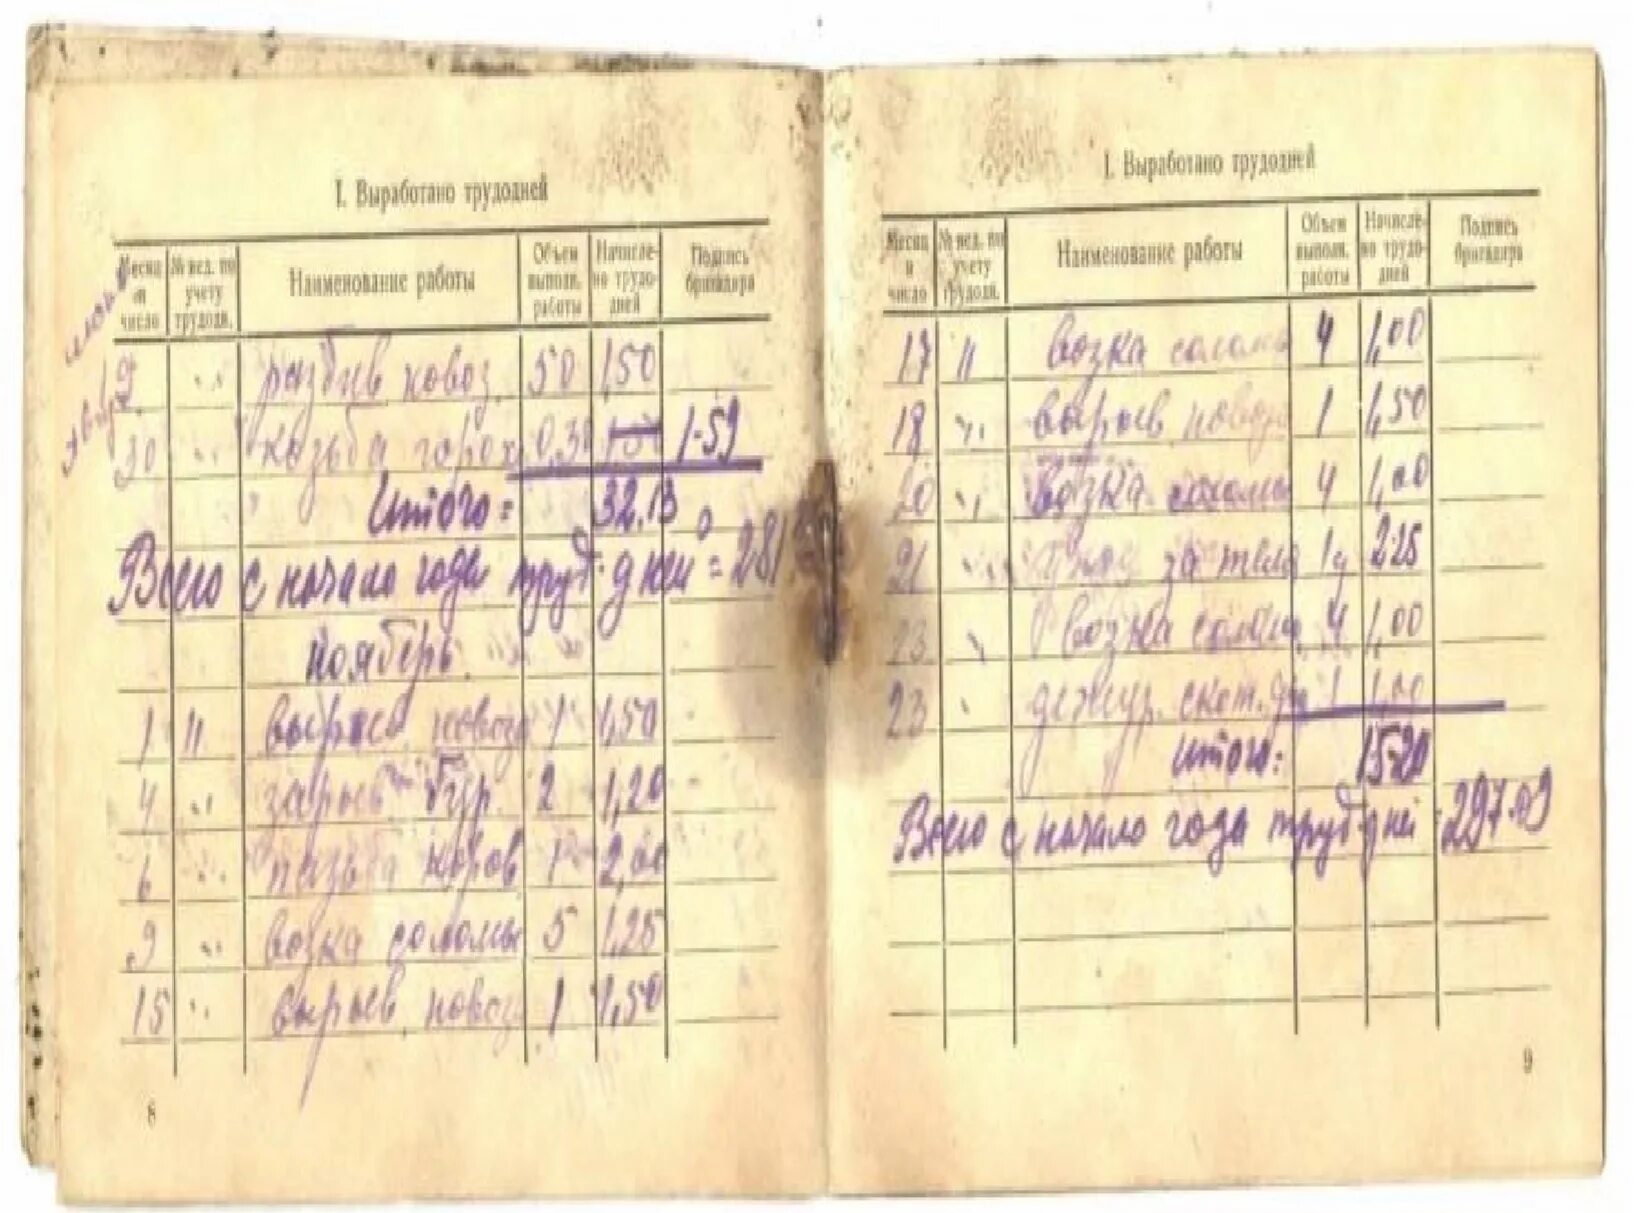 I. Выработано трудодней
Месяц и число № вед. по учету трудодн. Наименование работы Объем выполн. работы Начислено трудодней Подпись бригадира
разбив навоз 50 1,50
30 0,30 1-59
Итого = 32.13
Всего с начало года труд-дней = 281
Ноябрь
1 " навоза 1 1,50
4 " 2 1,20
6 " коров 1 2,00
9 " возка соломы 5 1,25
15 " навоз 1 1,50
8
I. Выработано трудодней
Месяц и число № вед. по учету трудодн. Наименование работы Объем выполн. работы Начислено трудодней Подпись бригадира
17 " возка соломы 4 1,00
18 " навоза 1 1,50
20 " возка соломы 4 1,00
21 " за 2-25
23 " возка соломы 4 1,00
23 " дежур. скот. 1 1,00
Итого: 15-20
Всего с начало года труд-дней 297-
9